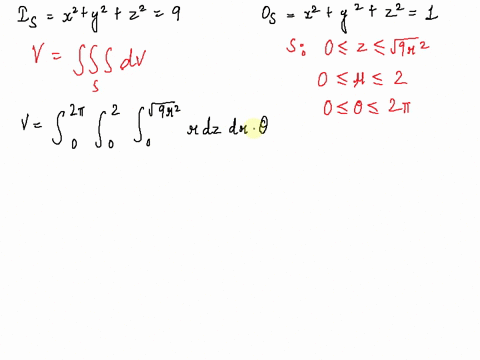 I_S = x² + y² + z² = 9
O_S = x² + y² + z² = 1
V = ∭_S dV
S: 0 ≤ z ≤ √9r²
0 ≤ r ≤ 2
0 ≤ θ ≤ 2π
V = ∫₀^2π ∫₀^2 ∫₀^√9r² r dz dr · θ